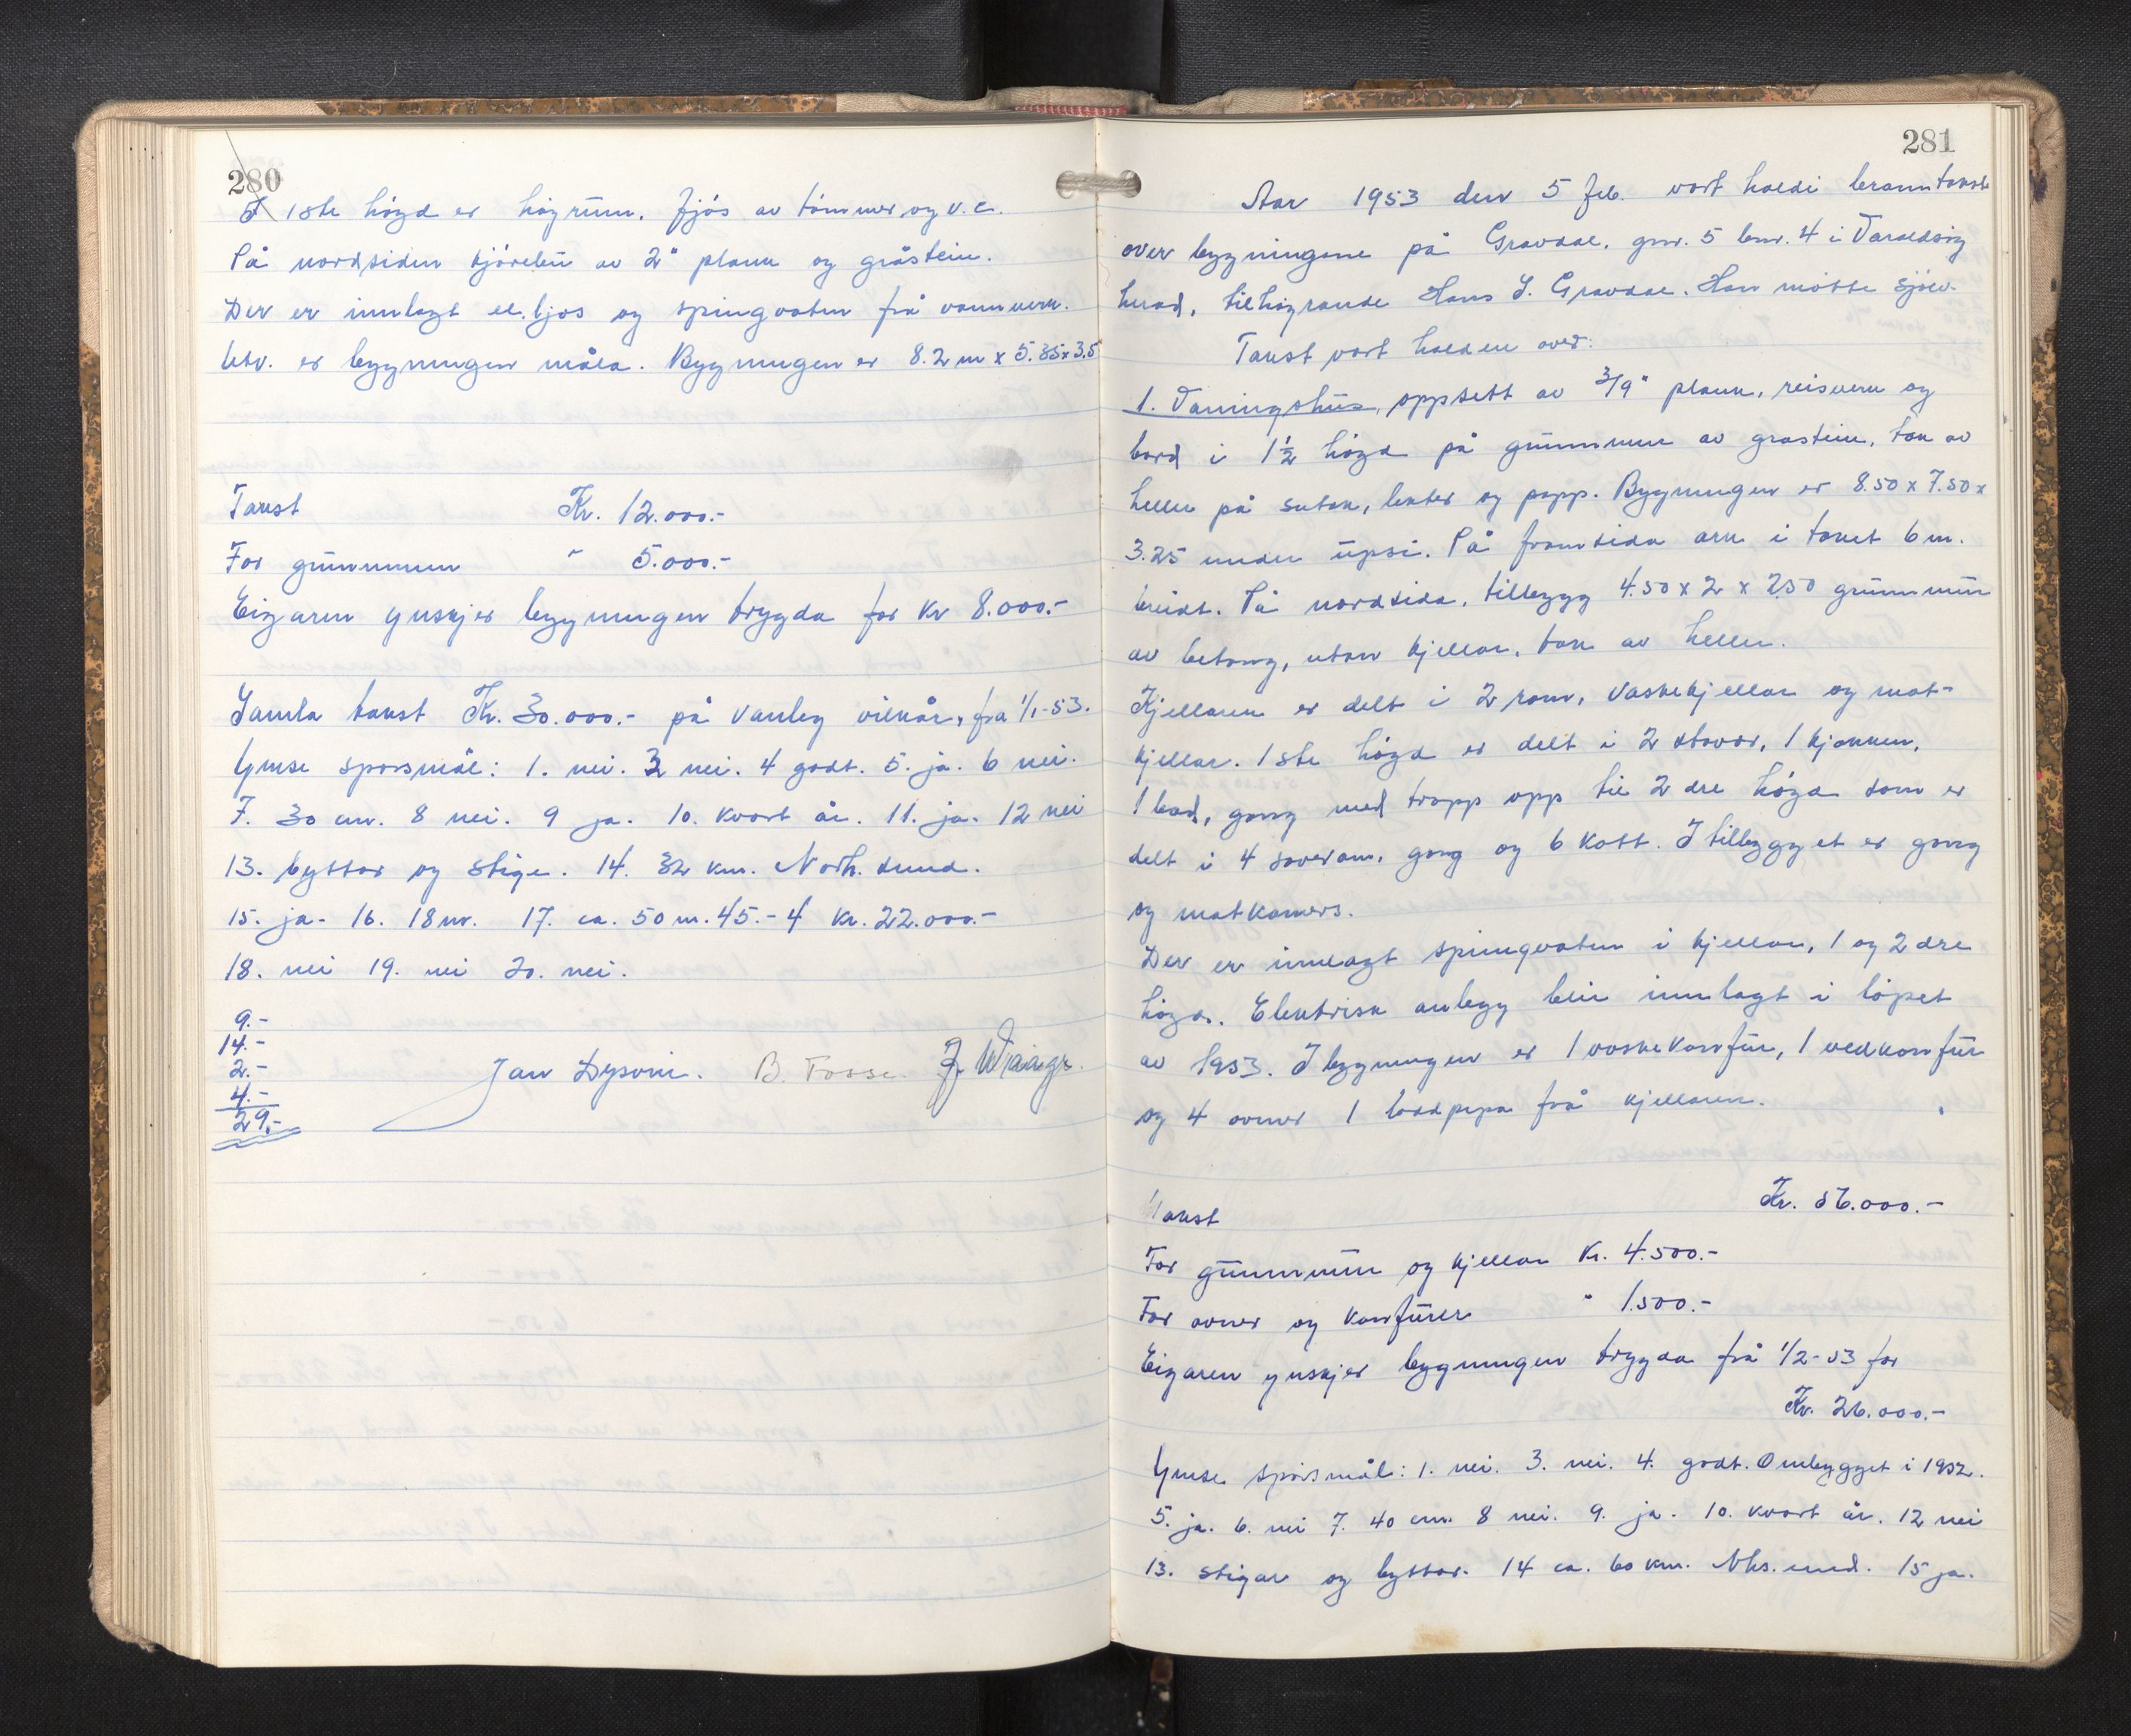 280
I 1ste högd er högrum. fjös av tömmer og v.c.
På nordsiden kjörebru av 2" plank og gråstein.
Der er innlagt el.ljos og springvatn frå vannverk.
Utv. er bygningen måla. Bygningen er 8.2 m x 5.35 x 3.5
Takst Kr. 12.000.-
For grunnmuren " 5.000.-
Eigaren ynskjer bygningen trygda for Kr 8.000.-
Samla takst Kr. 30.000.- på vanleg vilkår, fra 1/1-53.
Ymse sporsmål: 1. nei. 3 nei. 4 godt. 5. ja. 6 nei.
7. 30 cm. 8 nei. 9 ja. 10. kvart år. 11. ja. 12 nei
13. byttor og stige. 14. 32 km. Norh.sund.
15. ja. 16. 18 m. 17. ca. 50 m. 45.-4 Kr. 22.000.-
18. nei 19. nei 20. nei.
9.-
14.-
2.-
4.-
29.-
Jan Dysvik. B. Fosse.
281
Aar 1953 den 5 feb. vart haldi branntakst
over bygningane på Gravdal, gnr. 5 bnr. 4 i Varaldsöy
herad, tilhøyrande Hans J. Gravdal. Han møtte sjölv.
Takst vart halden over:
1. Vaningshus, oppsett av 3/9" plank, reisverk og
bord i 1½ högd på grunnmur av grastein, tak av
heller på sutak, lekter og papp. Bygningen er 8.50 x 7.50 x
3.25 under upsi. På framsida ark i taket 6 m.
breidt. På nordsida, tillbygg 4.50 x 2 x 2.50 grunnmur
av betong, utan kjellar, tak av heller.
Kjellaren er delt i 2 rom, vaskekjellar og mat-
kjellar. 1ste högd er delt i 2 stovor, 1 kjøkken,
1 bad, gang med trapp opp til 2dre högd som er
delt i 4 soverom, gang og 6 kott. I tillbygget er gang
og matkamers.
Der er innlagt springvatn i kjellar, 1 og 2dre
högd. Elektrisk anlegg blir innlagt i löpet
av 1953. I bygningen er 1 vaskekomfur, 1 vedkomfur
og 4 ovner 1 brandpipa frå kjellaren.
Takst Kr. 56.000.-
For grunnmur og kjellar Kr. 4.500.-
For ovner og komfurer " 1.500.-
Eigaren ynskjer bygningen trygda frå 1/2-53 for
Kr. 26.000.-
Ymse spörsmål: 1. nei. 3. nei. 4. godt. Ombygget i 1952.
5. ja. 6. nei 7. 40 cm. 8 nei. 9. ja. 10. kvart år. 12 nei
13. stigar og byttor. 14 ca. 60 km. Nhs.und. 15 ja.